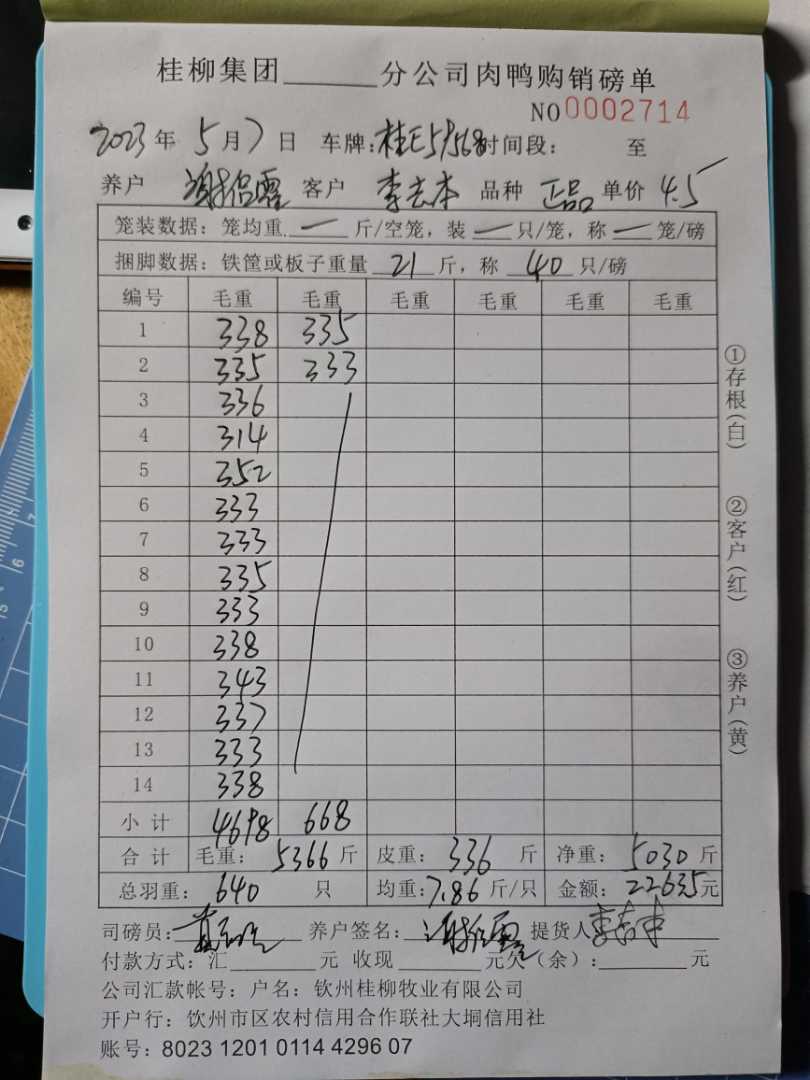 桂柳集团______分公司肉鸭购销磅单
NO 0002714
2023年 5月7日 车牌:桂E59568 时间段: 至
养户 客户 李志本 品种 正品 单价 4.5
笼装数据: 笼均重 — 斤/空笼, 装 — 只/笼, 称 — 笼/磅
捆脚数据: 铁筐或板子重量 21 斤, 称 40 只/磅
编号 毛重 毛重 毛重 毛重 毛重 毛重
1 338 335
2 335 333
3 336
4 314
5 352
6 333
7 333
8 335
9 333
10 338
11 343
12 337
13 333
14 338
小计 4698 668
合计 毛重: 5366 斤 皮重: 336 斤 净重: 5030 斤
总羽重: 640 只 均重: 7.86 斤/只 金额: 22635 元
司磅员: 养户签名: 提货人 李志本
付款方式: 汇______元 收现______元欠(余):______元
公司汇款帐号: 户名: 钦州桂柳牧业有限公司
开户行: 饮州市区农村信用合作联社大垌信用社
账号: 8023 1201 0114 4296 07
①存根(白)
②客户(红)
③养户(黄)